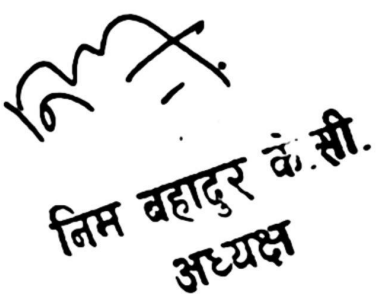 निम बहादुर के.सी.
अध्यक्ष